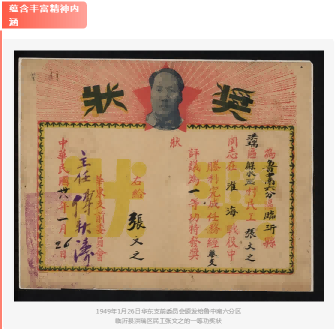 蕴含丰富精神内
涵
奖状
为鲁中南六分区临沂县
洪瑞区解
民工张文之
同志在淮海战役中
胜利完成任务经
评议为一等功特发奖
状
右给
张文之
华东支前委员会
主任傅秋涛
中华民国卅八年一月26日
1949年1月26日华东支前委员会颁发给鲁中南六分区
临沂县洪瑞区民工张文之的一等功奖状